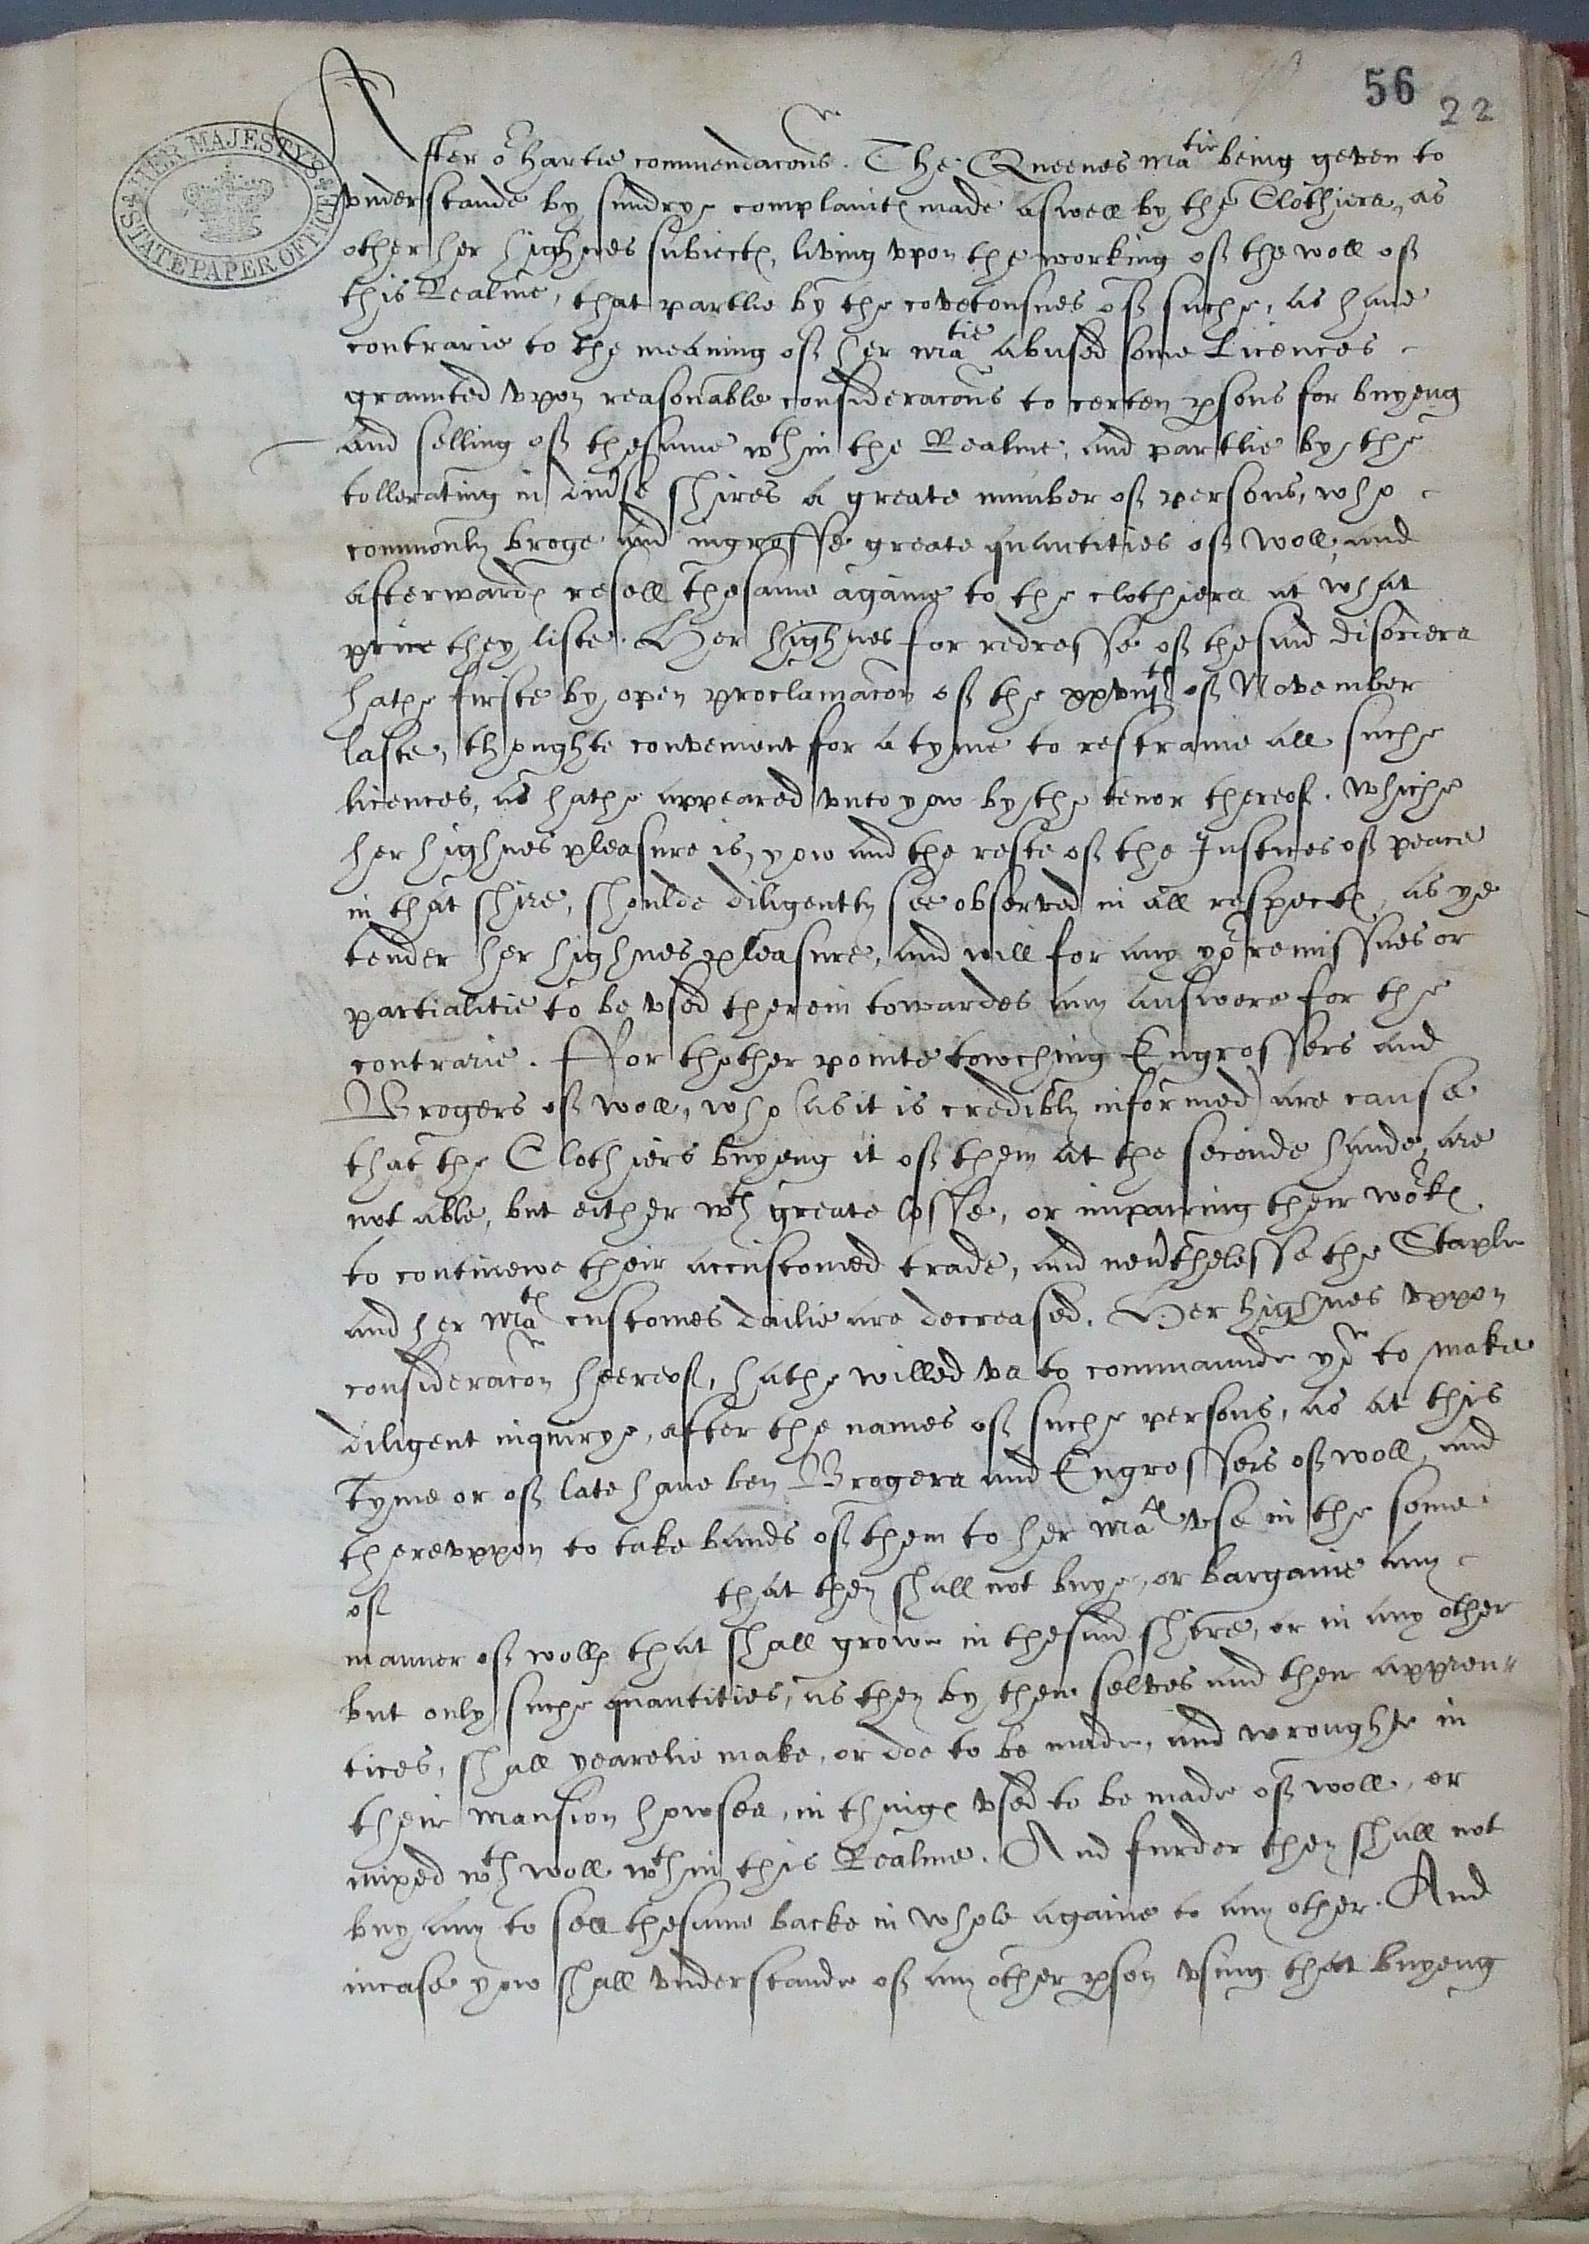 56
22
HER MAJESTY'S STATE PAPER OFFICE
After or hartie commendacons. The Queenes Matie being geven to
vnderstande by sundrye complaintes made aswell by the Clothiers, as
other her highnes subiectes, living vpon the working of the woll of
this Realme, that partlie by the covetousnes of suche, as have
contrarie to the meaning of her Matie abused some Licences
graunted vpon reasonable consideracons to certen psons for buyeng
and selling of thesame wthin the Realme, and partlie by the
tollerating in divse shires a greate number of persons, who
commonly broge and ingrosse greate quantities of woll, and
afterwardes resell thesame againe to the clothiers at what
price they liste. Her highnes for redresse of thesaid disorders
hathe firste by open proclamacon of the xxviijth of November
laste, thoughte convenient for a tyme to restraine all suche
licences, as hathe appeared vnto yow by the tenor thereof. Whiche
her highnes pleasure is, yow and the reste of the Justices of peace
in that shire, shoulde diligently see observed in all respectes, as ye
tender her highnes pleasure, and will for any yor remissnes or
partialitie to be vsed therein towardes any answere for the
contrarie. For thother pointe towching Engrossers and
Brogers of woll, who (as it is credibly informed) are cause
that the Clothiers buyeng it of them at the seconde hande, are
not able, but either wth greate losse, or impairing their workes
to continewe their accustomed trade, and nevthelesse the Staple
and her Mates customes dailie are decreased. Her highnes vppon
consideracon heereof, hathe willed vs to commaunde yow to make
diligent inquirye, after the names of suche persons, as at this
Tyme or of late have ben Brogers and Engrossers of woll, and
therevppon to take bands of them to her Mates vse in the some
of that they shall not buye, or bargaine any
manner of wolles that shall growe in thesaid shiere, or in any other
but only suche quantities, as they by them selves and their appren"
tices, shall yearelie make, or doe to be made, and wroughte in
their mansion howses, in thinges vsed to be made of woll, or
mixed wth woll wthin this Realme. And furder they shall not
buy any to sell thesame backe in whole againe to any other. And
incase yow shall vnderstande of any other pson vsing that buyeng